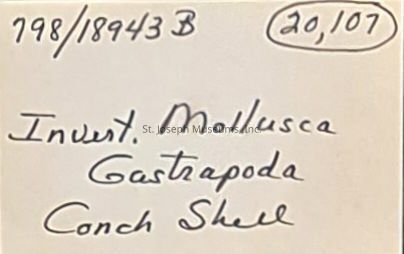 798/18943 B 20,107
Invert. Mollusca
St. Joseph Museums, Inc.
Gastrapoda
Conch Shell